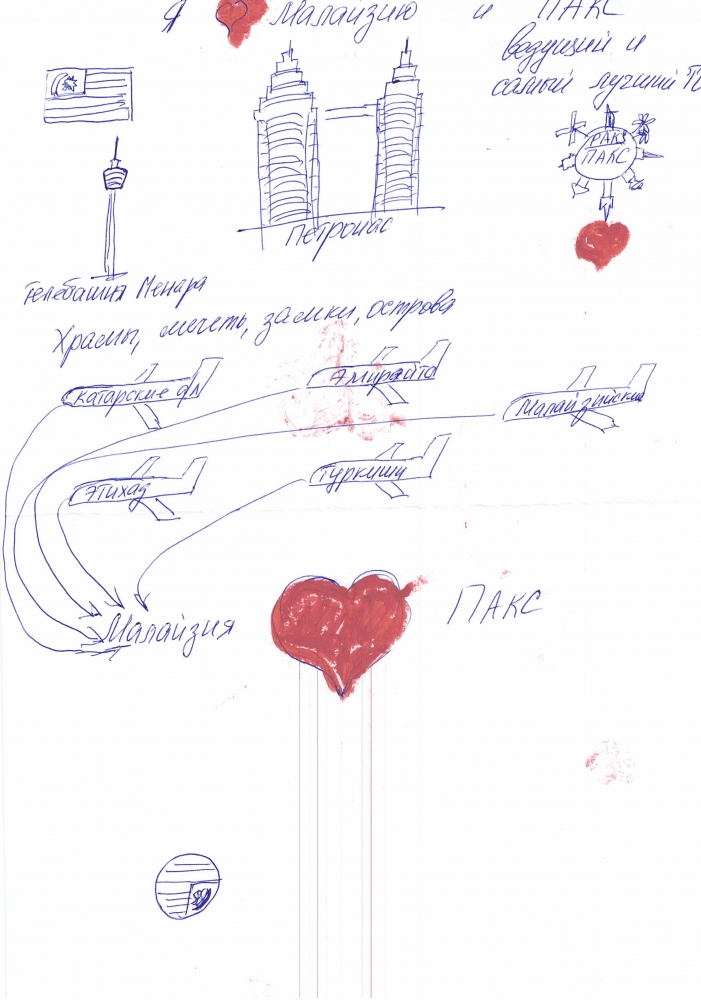 Я Малайзию и ПАКС
водущий и
самый лучший
PAKS
ПАКС
Петронас
Телебашня Менара
Храмы, мечеть, замки, острова
Катарские ал
Эмирайтс
Малайзийские
Этихад
Туркиш
Малайзия
ПАКС